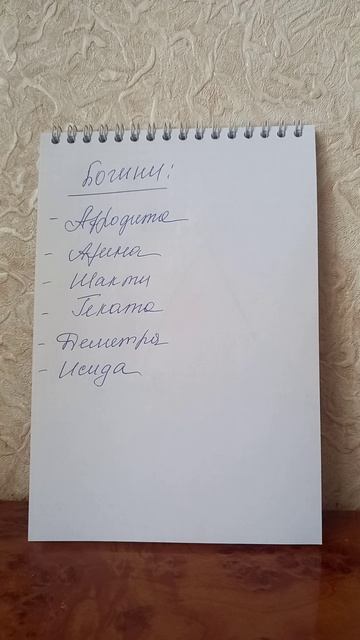 Богини:
- Афродита
- Афина
- Шакти
- Геката
- Деметра
- Исида